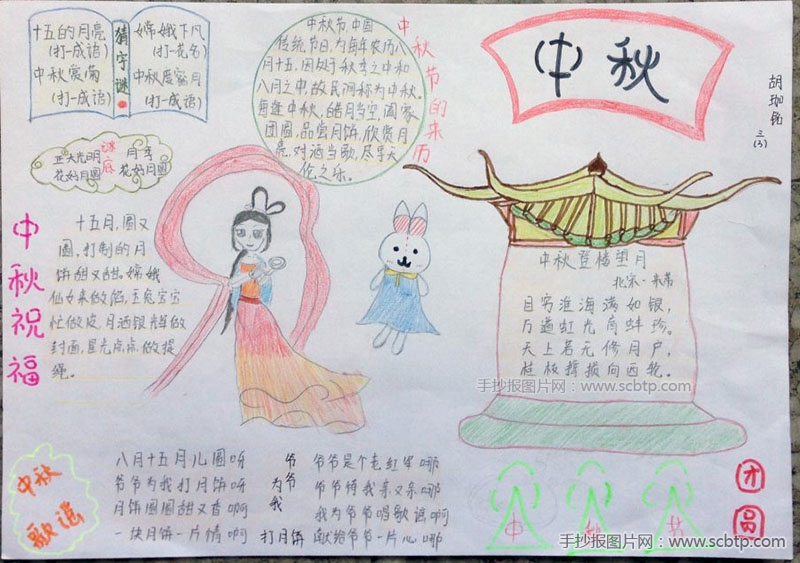 十五的月亮
(打一成语)
中秋赏菊
(打一成语)
猜字谜
嫦娥下凡
(打一花名)
中秋度蜜月
(打一成语)
谜底
正大光明
花好月圆
月季
花好月圆
中秋节,中国
传统节日,为每年农历八
月十五,因处于秋季之中和
八月之中,故民间称为中秋,
每逢中秋,皓月当空,阖家
团圆,品尝月饼,欣赏月
亮,对酒当歌,尽享天
伦之乐。
中秋节的来历
中秋
胡珈铭
三(3)
中秋祝福
十五月,圆又
圆,打制的月
饼甜又甜。嫦娥
仙女来做馅,玉兔宝宝
忙做皮,月洒银辉做
封面,星光点点做提
绳。
中秋登楼望月
北宋·米芾
目穷淮海满如银,
万道虹光育蚌珍。
天上若无修月户,
桂枝撑损向西轮。
手抄报图片网:www.scbtp.com
中秋
歌谣
八月十五月儿圆呀
爷爷为我打月饼呀
月饼圆圆甜又香啊
一块月饼一片情啊
爷爷为我打月饼
爷爷是个老红军哪
爷爷待我亲又亲哪
我为爷爷唱歌谣啊
献给爷爷一片心哪
中
秋
团
圆
手抄报图片网:www.scbtp.com